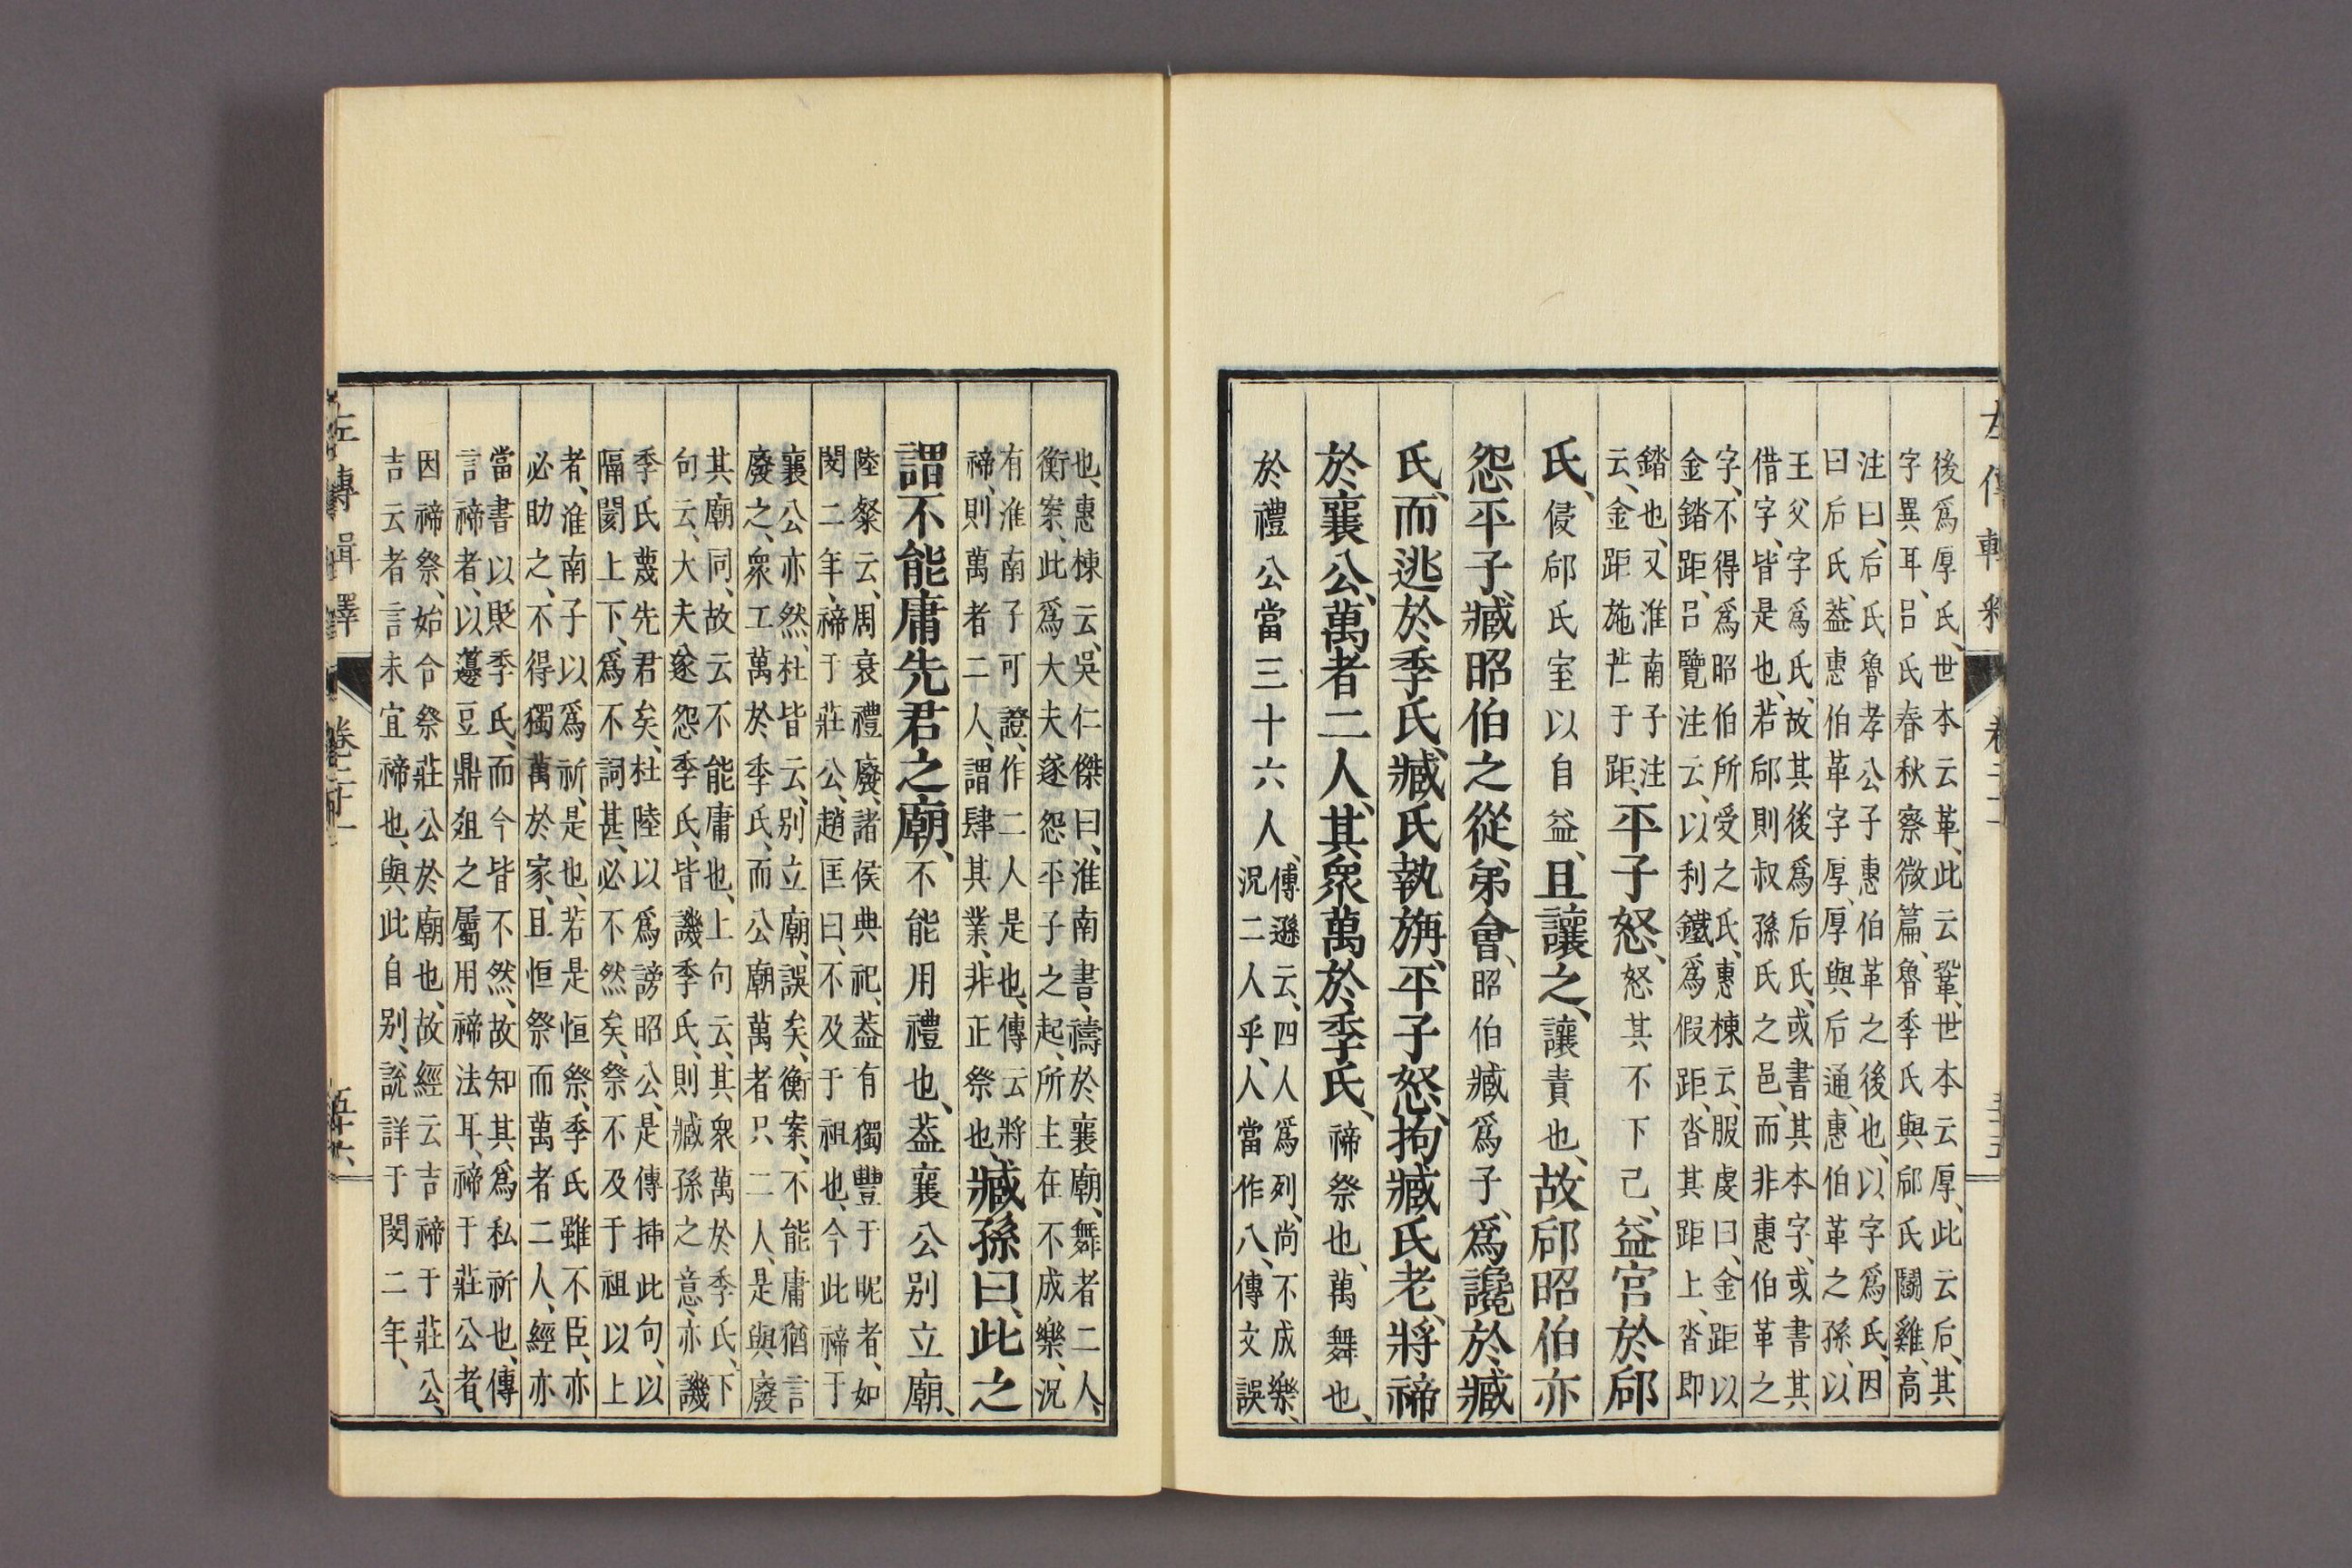 後爲厚氏、世本云革、此云鞏、世本云厚、此云后、其
字異耳、呂氏春秋察微篇、魯季氏與郈氏鬪雞、高
注曰、后氏魯孝公子惠伯革之後也、以字爲氏、因
曰后氏、葢惠伯革字厚、厚與后通、惠伯革之孫、以
王父字爲氏、故其後爲后氏、或書其本字、或書其
借字、皆是也、若郈則叔孫氏之邑、而非惠伯革之
字、不得爲昭伯所受之氏、惠棟云、服虔曰、金距以
金錔距、呂覽注云、以利鐵爲假距、沓其距上、沓即
錔也、又淮南子注
云、金距施芒于距、平子怒、怒其不下己、益宮於郈
氏、侵郈氏室以自益、且讓之、讓責也、故郈昭伯亦
怨平子、臧昭伯之從弟會、昭伯臧爲子、爲讒於臧
氏、而逃於季氏、臧氏執旃、平子怒、拘臧氏老、將禘
於襄公、萬者二人、其衆萬於季氏、禘祭也、萬舞也、
於禮公當三十六人、傅遜云、四人爲列、尚不成樂、
況二人乎、人當作八、傳文誤
也、惠棟云、吳仁傑曰、淮南書、禱於襄廟、舞者二人、
衡案、此爲大夫遂怨平子之起、所主在不成樂、況
有淮南子可證、作二人是也、傳云將
禘、則萬者二人、謂肆其業、非正祭也、臧孫曰、此之
謂不能庸先君之廟、不能用禮也、葢襄公別立廟、
陸粲云、周衰禮廢、諸侯典祀、葢有獨豐于昵者、如
閔二年、禘于莊公、趙匡曰、不及于祖也、今此禘于
襄公亦然、杜皆云、別立廟、誤矣、衡案、不能庸猶言
廢之、衆工萬於季氏、而公廟萬者只二人、是與廢
其廟同、故云不能庸也、上句云、其衆萬於季氏、下
句云、大夫遂怨季氏、皆譏季氏、則臧孫之意、亦譏
季氏蔑先君矣、杜陸以爲謗昭公、是傳揷此句、以
隔閡上下、爲不詞甚、必不然矣、祭不及于祖以上
者、淮南子以爲祈、是也、若是恒祭、季氏雖不臣、亦
必助之、不得獨萬於家、且恒祭而萬者二人、經亦
當書以貶季氏、而今皆不然、故知其爲私祈也、傳
言禘者、以籩豆鼎俎之屬用禘法耳、禘于莊公者、
因禘祭、始合祭莊公於廟也、故經云吉禘于莊公、
吉云者言未宜禘也、與此自別、說詳于閔二年、
左傳輯釋 卷二十一 五十六